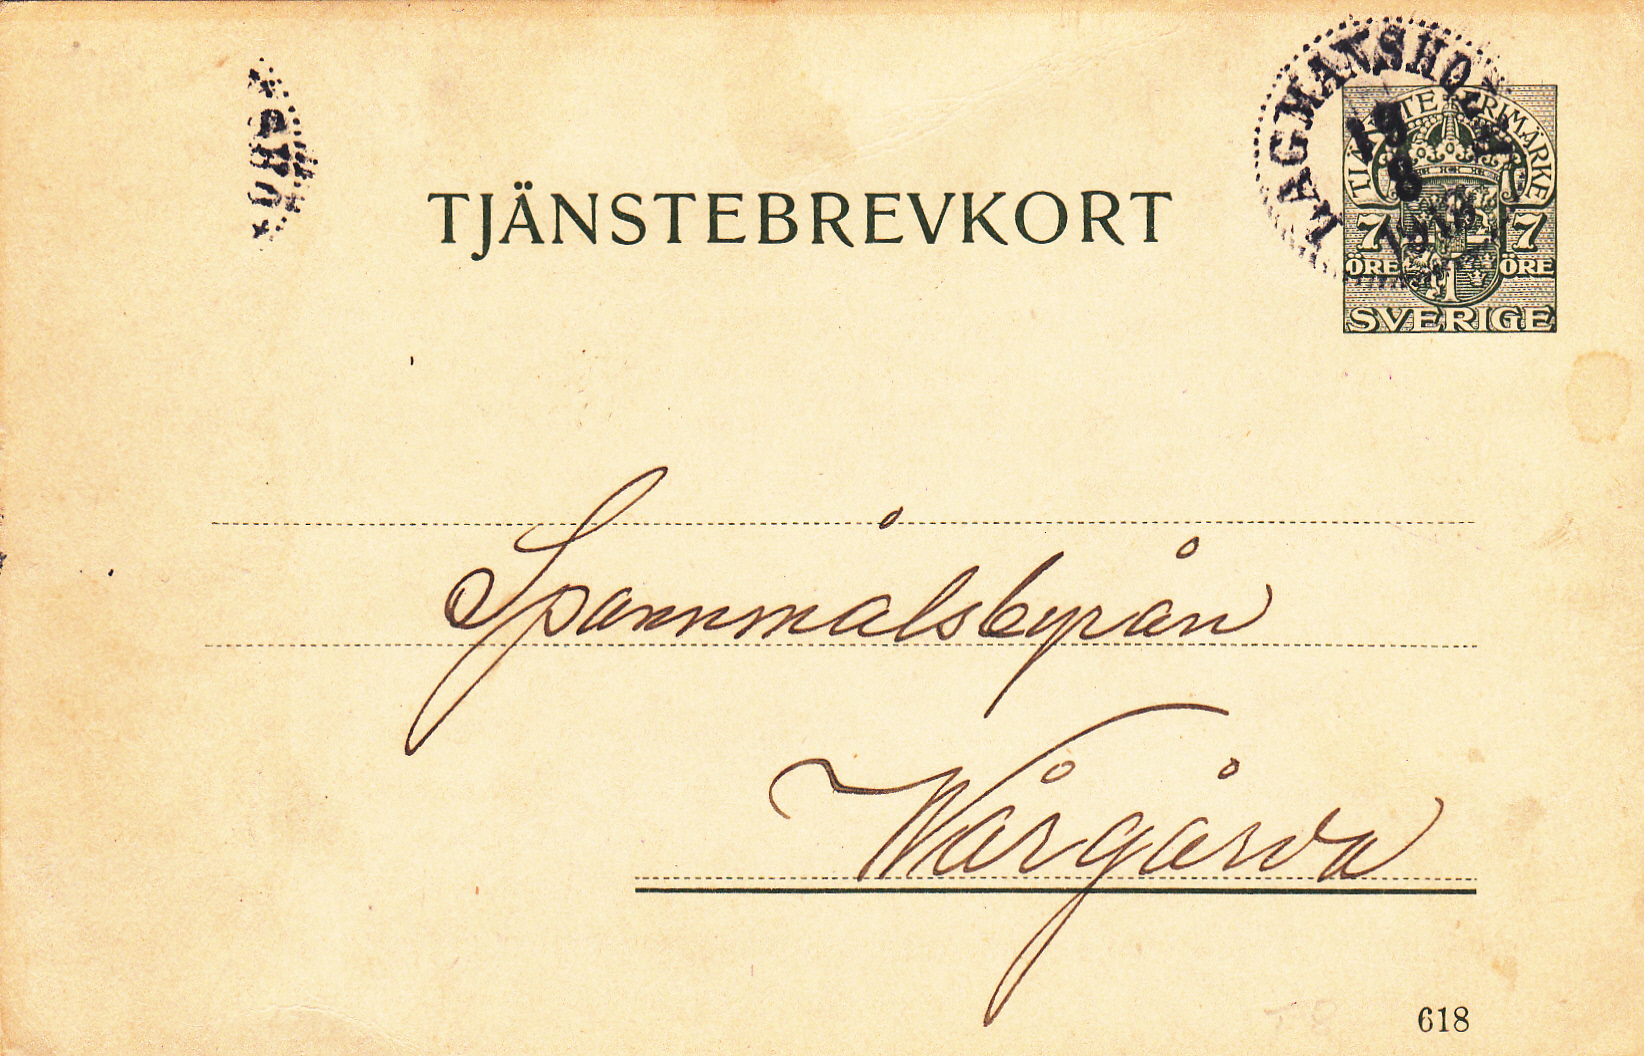 TJÄNSTEBREVKORT
LAGMANSHOLM
19
8
TJÄNSTE FRIMÄRKE
7 7
ÖRE ÖRE
SVERIGE
Spannmålsbyrån
Wårgårda
618